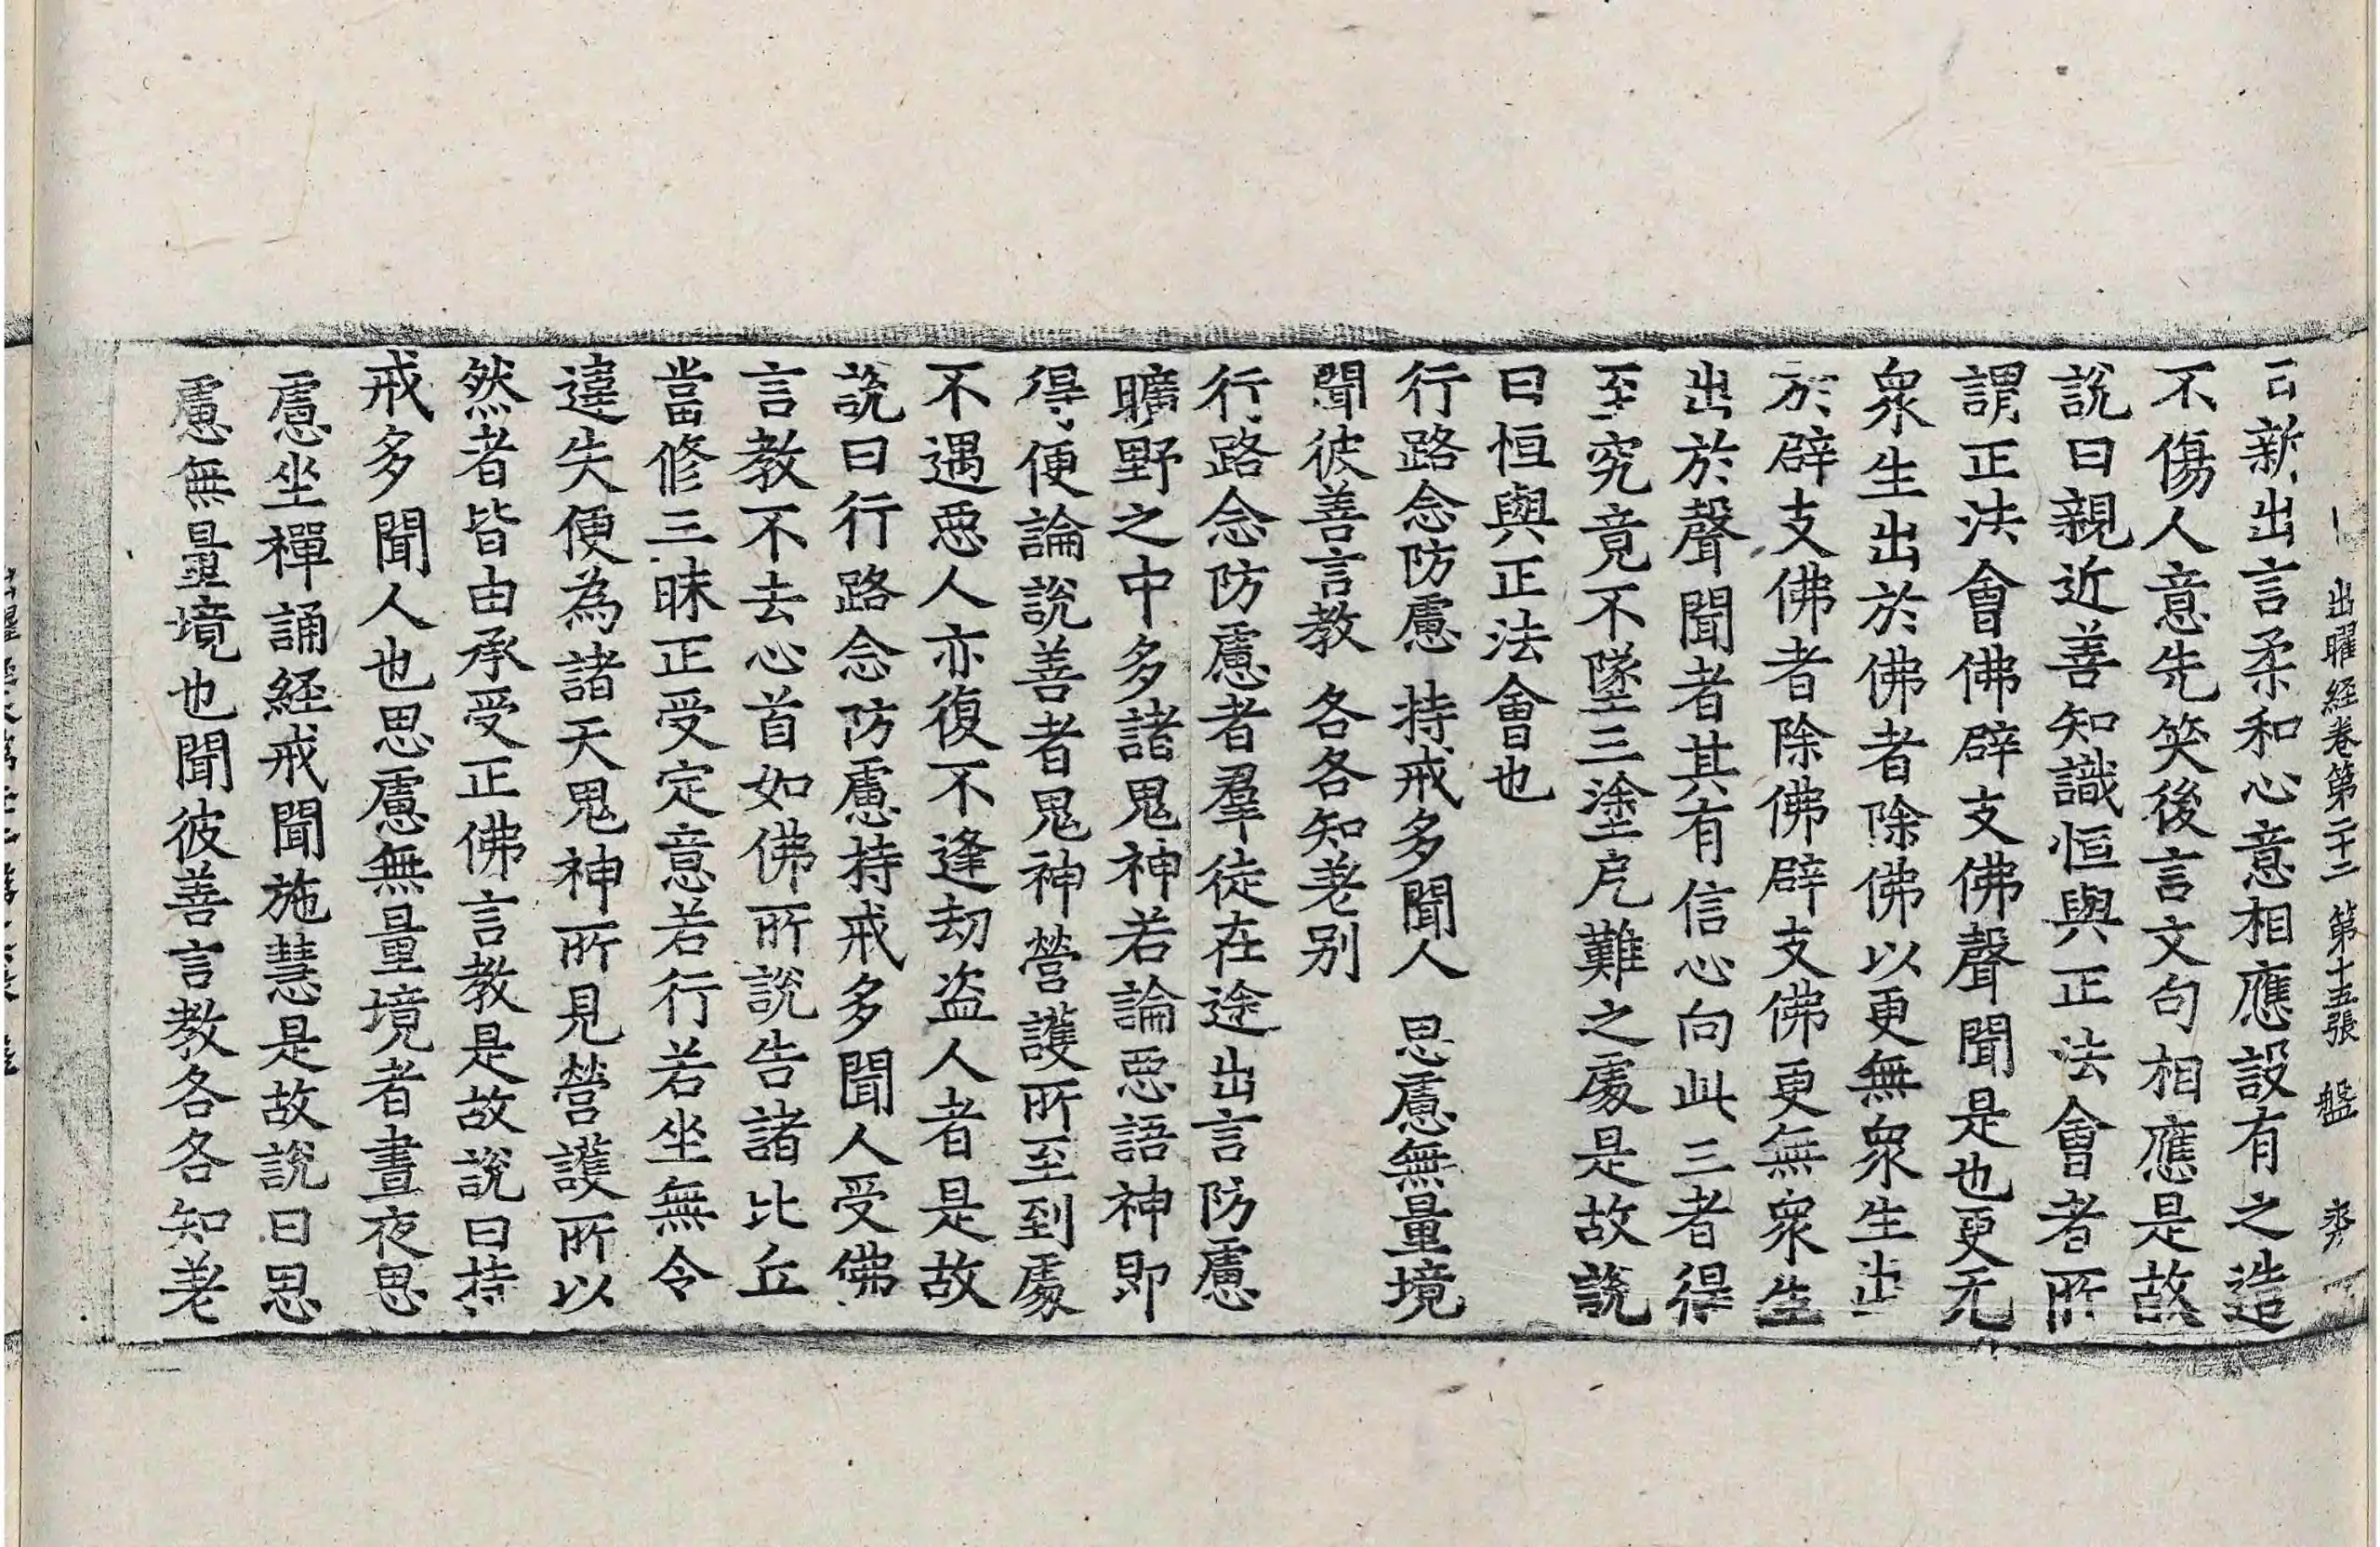 出曜経卷第二十二 第十五張 盤
新出言柔和心意相應設有之造
不傷人意先笑後言文句相應是故
說曰親近善知識恒與正法會者所
謂正法會佛辟支佛聲聞是也更无
衆生出於佛者除佛以更無衆生出
於辟支佛者除佛辟支佛更無衆生
出於聲聞者其有信心向此三者得
至究竟不墜三塗厄難之處是故說
曰恒與正法會也
行路念防慮 持戒多聞人 思慮無量境
聞彼善言教 各各知差别
行路念防慮者羣徒在途出言防慮
曠野之中多諸鬼神若論惡語神即
得便論說善者鬼神營護所至到處
不遇惡人亦復不逢劫盗人者是故
説曰行路念防慮持戒多聞人受佛
言教不去心首如佛所說告諸比丘
當修三昧正受定意若行若坐無令
違失便為諸天鬼神所見營護所以
然者皆由承受正佛言教是故說曰持
戒多聞人也思慮無量境者晝夜思
慮坐禪誦経戒聞施慧是故說曰思
慮無量境也聞彼善言教各各知差